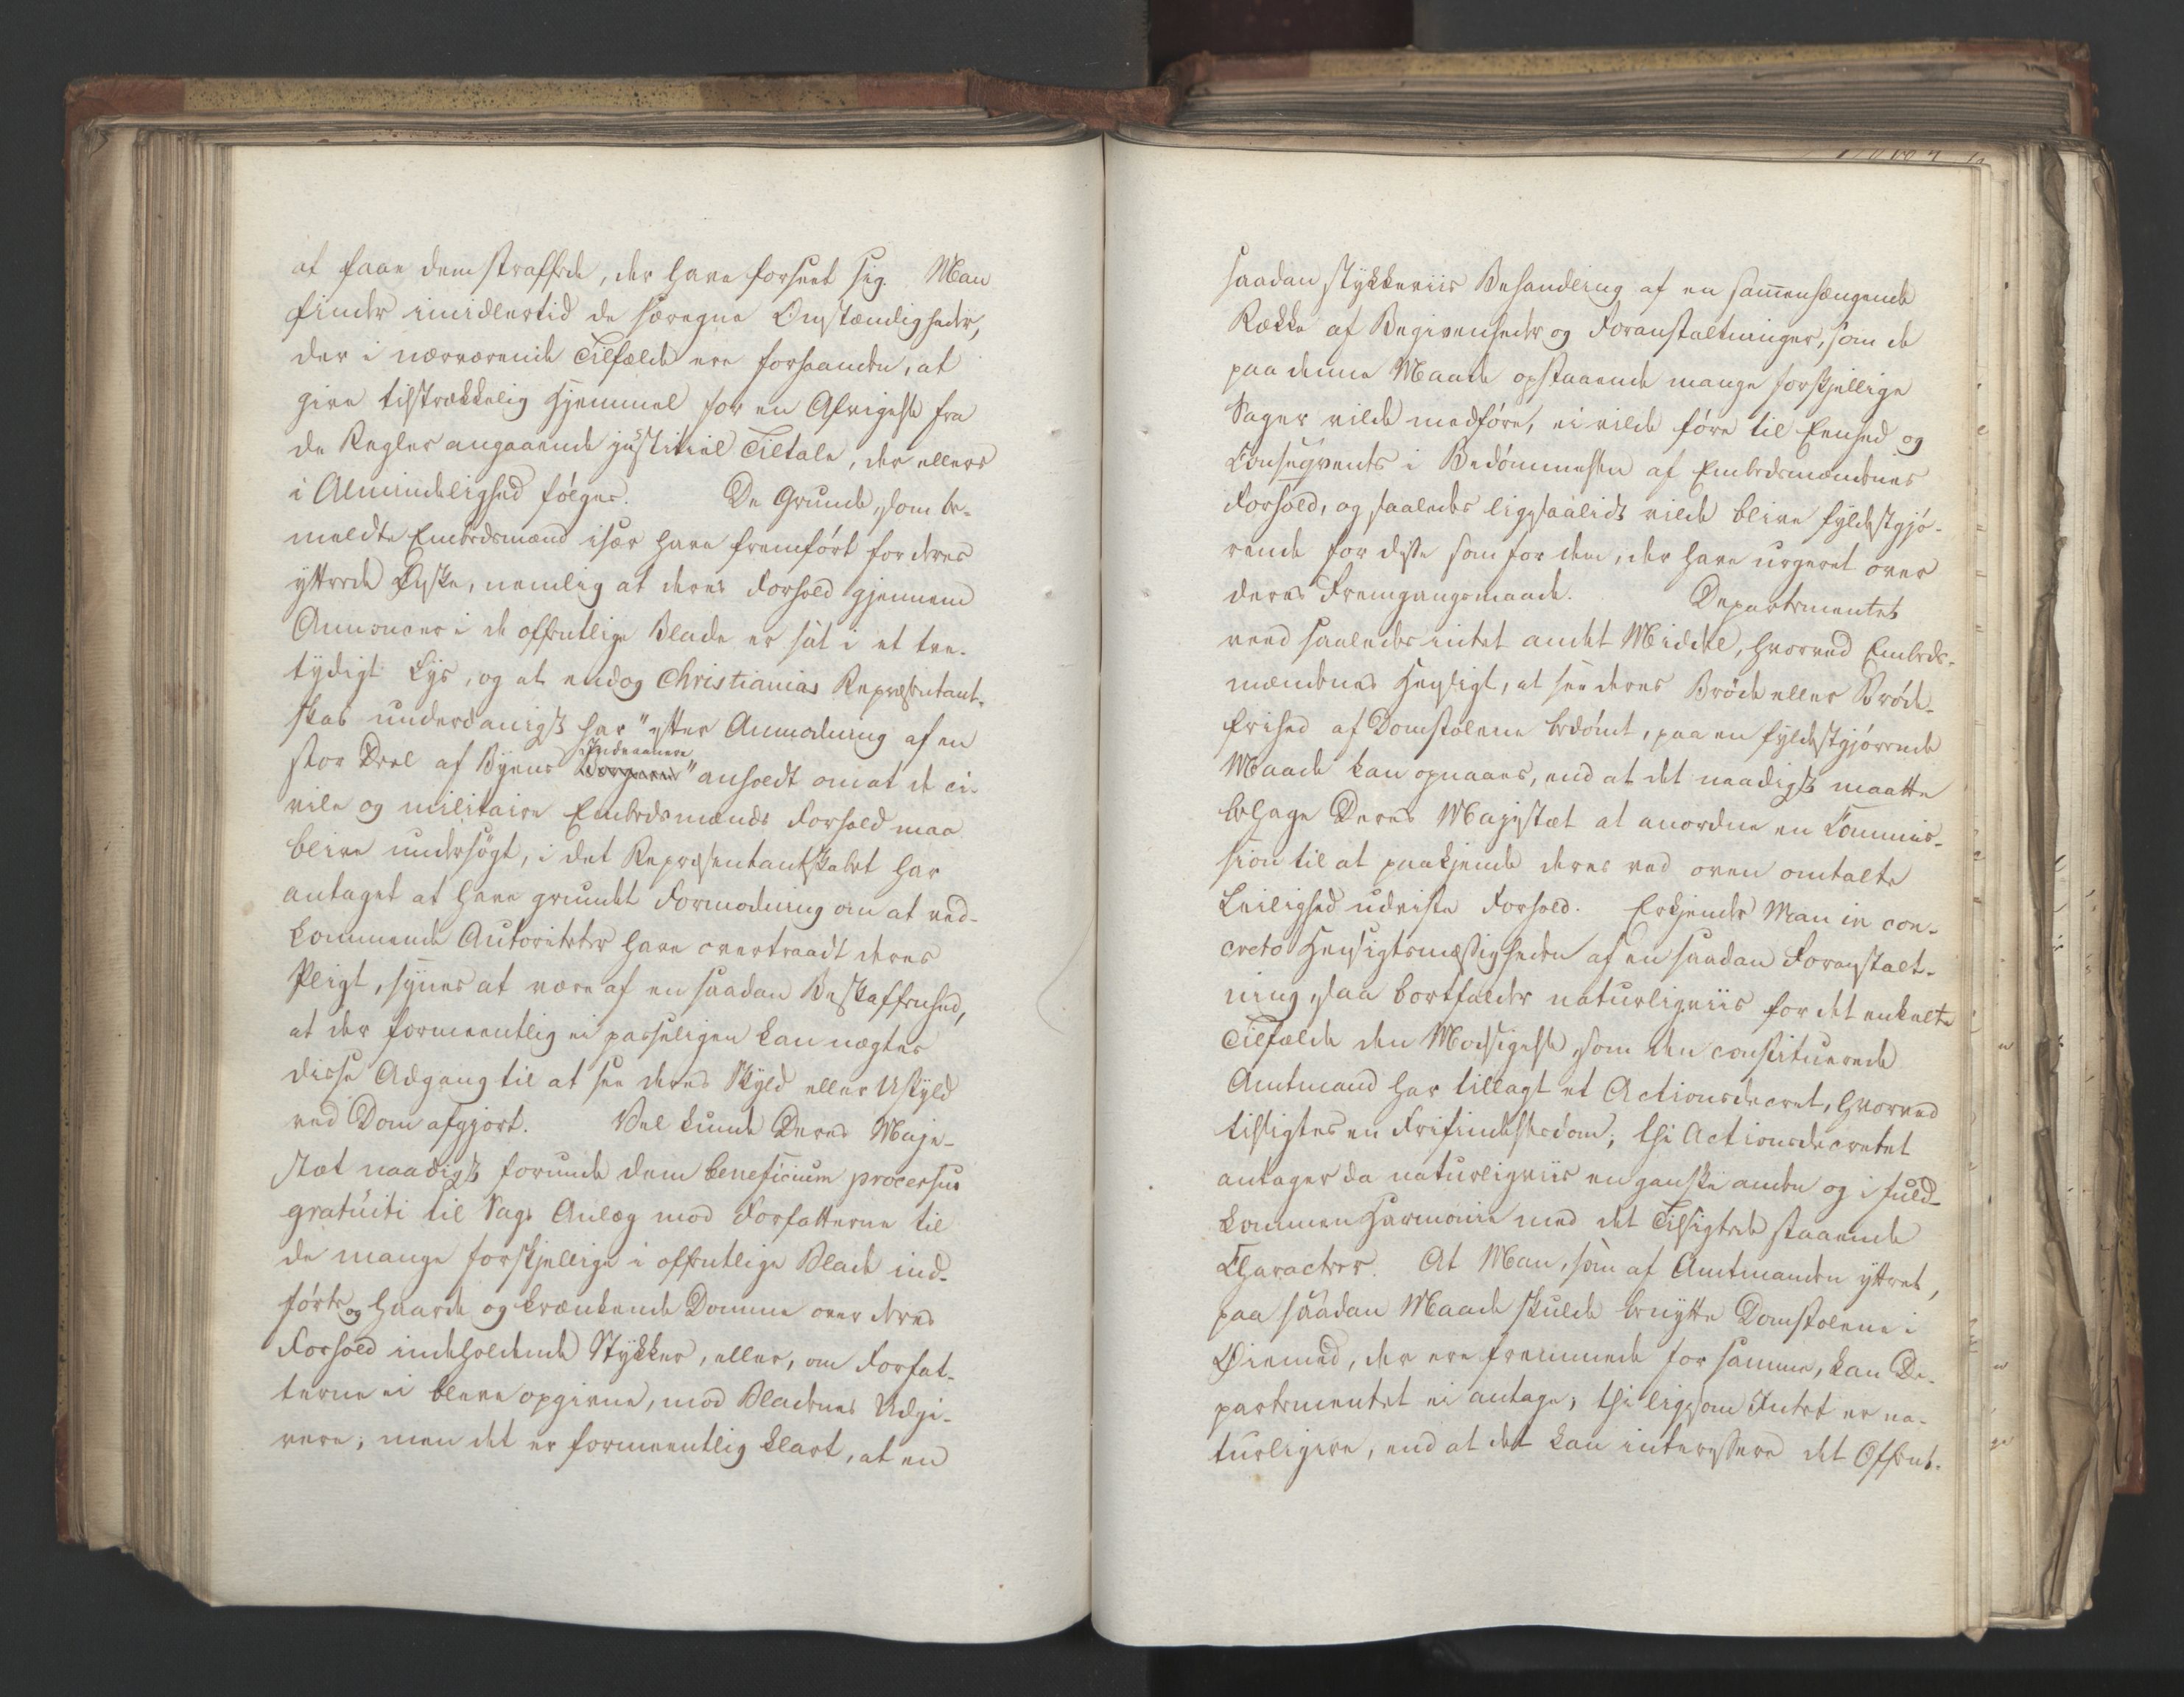 at faae dem straffede, der have forseet sig. Man
finder imidlertid de særegne Omstændigheder,
der i nærværende Tilfælde ere forhaanden, at
give tilstrækkelig Hjemmel for en Afvigelse fra
de Regler angaaende justitiel Tiltale, der ellers
i Almindelighed følges. De Grunde, som be-
meldte Embedsmænd især have fremført for deres
yttrede Ønske, nemlig at deres Forhold gjennem
Annoncer i de offentlige Blade er sat i et tve-
tydigt Lys, og at endog Christianias Repræsentant-
skab underdanigst har "efter Anmodning af en
stor Deel af Byens Indvaanere" anholdt om at de ci-
vile og militaire Embedsmænds Forhold maa
blive undersøgt, i det Repræsentantskabet har
antaget at have grundet Formodning om at ved-
kommende Autoriteter have overtraadt deres
Pligt, synes at være af en saadan Beskaffenhed,
at der formeentlig ei passeligen kan nægtes
disse Adgang til at see deres Skyld eller Uskyld
ved Dom afgjort. Vel kunde Deres Maje-
stæt naadigst forunde dem beneficium processus
gratuiti til Sags Anlæg mod Forfatterne til
de mange forskjellige i offentlige Blade ind-
førte og haarde og krænkende Domme over deres
Forhold indeholdende Stykker, eller, om Forfat-
terne ei bleve opgivne, mod Bladenes Udgi-
vere; men det er formeentlig klart, at en
saadan stykkeviis Behandling af en sammenhængende
Række af Begivenheder og Foranstaltninger, som de
paa denne Maade opstaaende mange forskjellige
Sager vilde medføre, ei vilde føre til Eenhed og
Conseqvents i Bedømmelsen af Embedsmændenes
Forhold, og saaledes ligesaalidt vilde blive fyldestgjø-
rende for disse som for dem, der have urgeret over
deres Fremgangsmaade. Departementet
veed saaledes intet andet Middel, hvorved Embeds-
mændenes Hensigt, at see deres Brøde eller Brøde-
frihed af Domstolene bedømt, paa en fyldestgjørende
Maade kan opnaaes, end at det naadigst maatte
behage Deres Majestæt at anordne en Commis-
sion til at paakjende deres ved oven omtalte
Leilighed udviste Forhold. Erkjender Man in con-
creto Hensigtsmæssigheden af en saadan Foranstalt-
ning, saa bortfalder naturligviis for det enkelte
Tilfælde den Modsigelse, som den constituerede
Amtmand har tillagt et Actionsdecret, hvorved
tilsigtes en Frifindelsesdom; thi Actionsdecretet
antager da naturligviis en ganske anden og i fuld-
kommen Harmonie med det Tilsigtede staaende
Character. At Man, som af Amtmanden yttret,
paa saadan Maade skulde benytte Domstolene i
Øiemed, der ere fremmede for samme, kan De-
partementet ei antage; thi ligesom Intet er na-
turligere, end at det kan interessere det Offent-